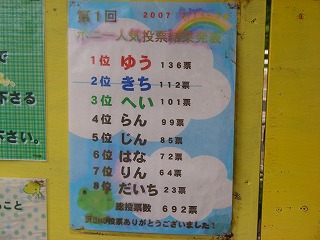 第1回 2007
ポニー人気投票結果発表
1位 ゆう 136票
2位 きち 112票
3位 へい 101票
4位 らん 99票
5位 じん 85票
6位 はな 72票
7位 りん 64票
8位 だいち 23票
総投票数 692票
投票ありがとうございました!
で
下さる
さい。
こと